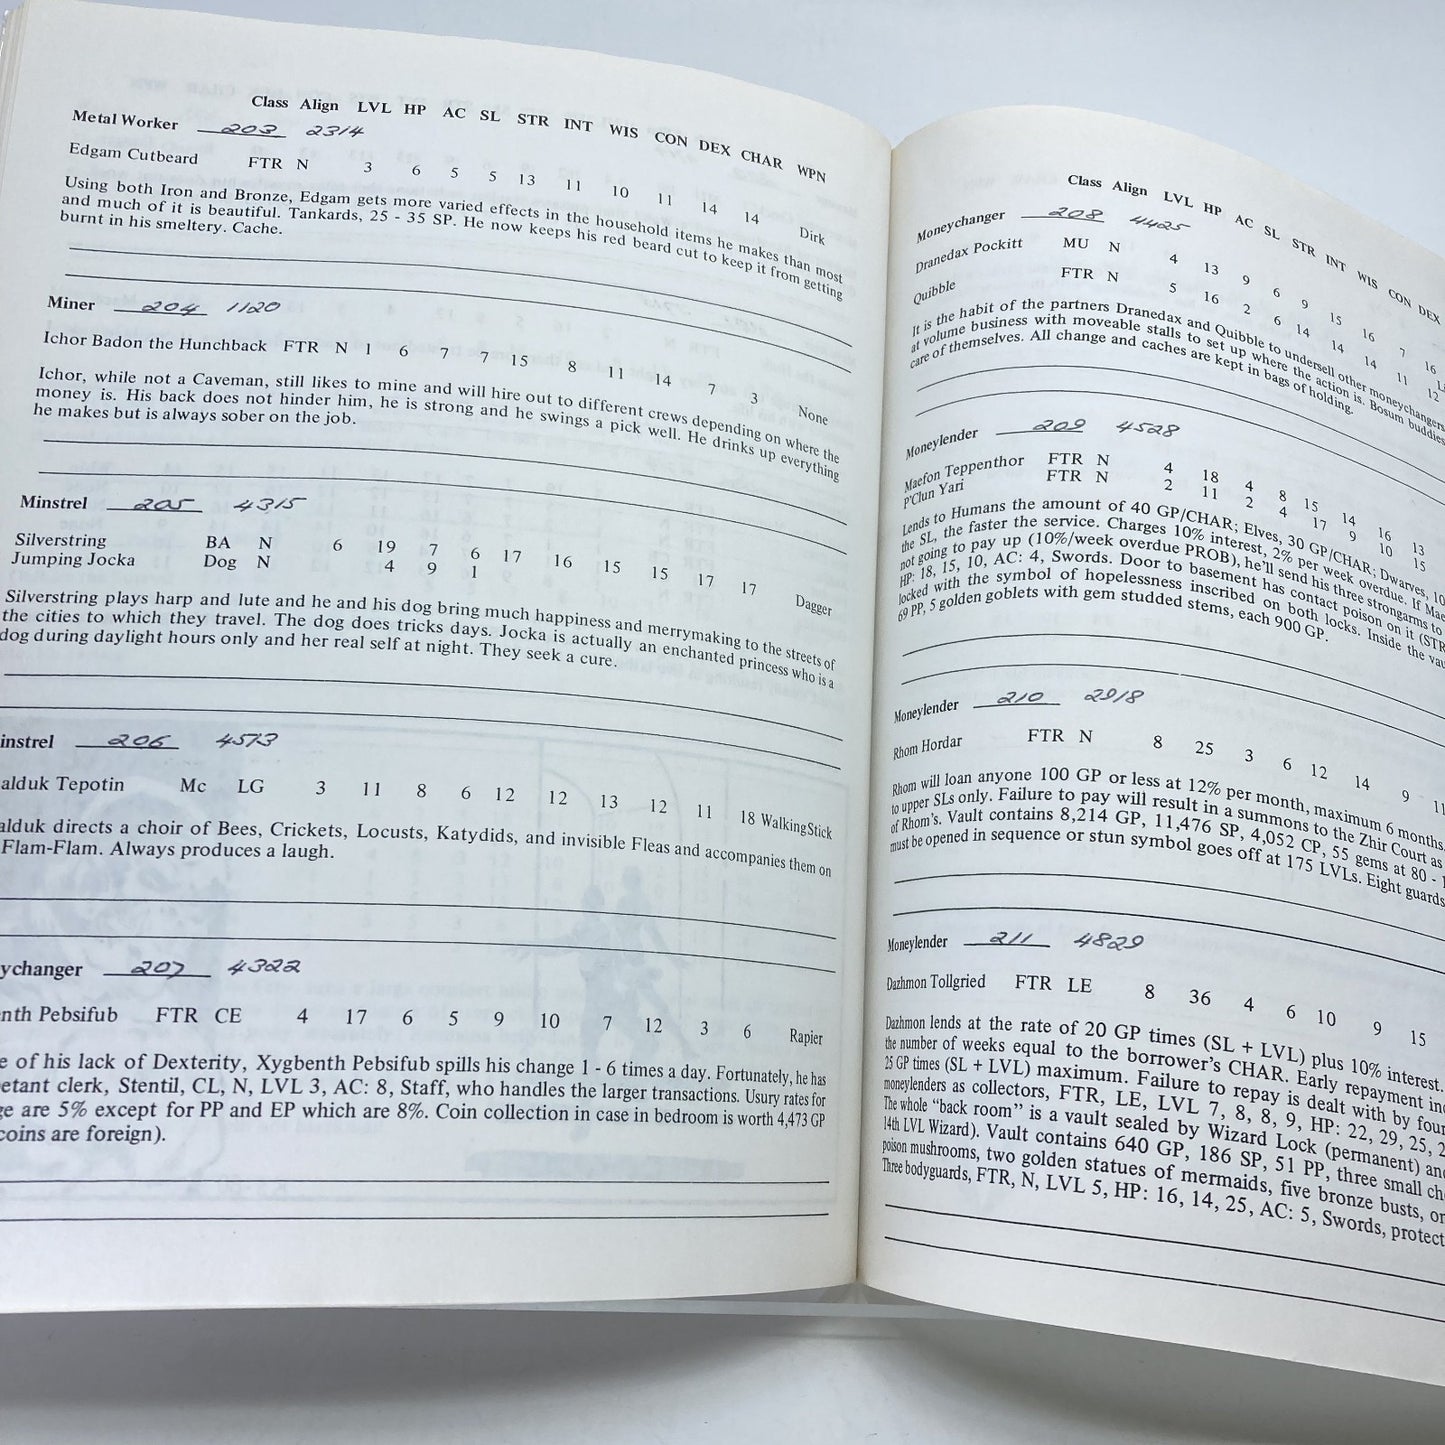 Class Align LVL HP AC SL STR INT WIS CON DEX CHAR WPN
Metal Worker 203 2314
Edgam Cutbeard FTR N 3 6 5 5 13 11 10 11 14 14 Dirk
Using both Iron and Bronze, Edgam gets more varied effects in the household items he makes than most
and much of it is beautiful. Tankards, 25 - 35 SP. He now keeps his red beard cut to keep it from getting
burnt in his smeltery. Cache.
Miner 204 1120
Ichor Badon the Hunchback FTR N 1 6 7 7 15 8 11 14 7 3 None
Ichor, while not a Caveman, still likes to mine and will hire out to different crews depending on where the
money is. His back does not hinder him, he is strong and he swings a pick well. He drinks up everything
he makes but is always sober on the job.
Minstrel 205 4315
Silverstring BA N 6 19 7 6 17 16 15 15 17 17 Dagger
Jumping Jocka Dog N 4 9 1
Silverstring plays harp and lute and he and his dog bring much happiness and merrymaking to the streets of
the cities to which they travel. The dog does tricks days. Jocka is actually an enchanted princess who is a
dog during daylight hours only and her real self at night. They seek a cure.
instrel 206 4513
alduk Tepotin Mc LG 3 11 8 6 12 12 13 12 11 18 WalkingStick
alduk directs a choir of Bees, Crickets, Locusts, Katydids, and invisible Fleas and accompanies them on
Flam-Flam. Always produces a laugh.
ychanger 207 4322
nth Pebsifub FTR CE 4 17 6 5 9 10 7 12 3 6 Rapier
e of his lack of Dexterity, Xygbenth Pebsifub spills his change 1 - 6 times a day. Fortunately, he has
etant clerk, Stentil, CL, N, LVL 3, AC: 8, Staff, who handles the larger transactions. Usury rates for
ge are 5% except for PP and EP which are 8%. Coin collection in case in bedroom is worth 4,473 GP
coins are foreign).
Class Align LVL HP AC SL STR INT WIS CON DEX
Moneychanger 208 4425
Dranedax Pockitt MU N 4 13 9 6 9 15 16 7 16
Quibble FTR N 5 16 2 6 14 14 14 11 12
It is the habit of the partners Dranedax and Quibble to undersell other moneychangers
at volume business with moveable stalls to set up where the action is. Bosum buddies
care of themselves. All change and caches are kept in bags of holding.
Moneylender 209 4528
Maefon Teppenthor FTR N 4 18 4 8 15 14 16 13
P'Clun Yari FTR N 2 11 2 4 17 9 10 15
Lends to Humans the amount of 40 GP/CHAR; Elves, 30 GP/CHAR; Dwarves, 10
the SL, the faster the service. Charges 10% interest, 2% per week overdue. If Mae
not going to pay up (10%/week overdue PROB), he'll send his three strongarms to
HP: 18, 15, 10, AC: 4, Swords. Door to basement has contact poison on it (STR
locked with the symbol of hopelessness inscribed on both locks. Inside the vau
69 PP, 5 golden goblets with gem studded stems, each 900 GP.
Moneylender 210 2918
Rhom Hordar FTR N 8 25 3 6 12 14 9 11
Rhom will loan anyone 100 GP or less at 12% per month, maximum 6 months,
to upper SLs only. Failure to pay will result in a summons to the Zhir Court as
of Rhom's. Vault contains 8,214 GP, 11,476 SP, 4,052 CP, 55 gems at 80 - 1
must be opened in sequence or stun symbol goes off at 175 LVLs. Eight guards
Moneylender 211 4829
Dazhmon Tollgried FTR LE 8 36 4 6 10 9 15
Dazhmon lends at the rate of 20 GP times (SL + LVL) plus 10% interest.
the number of weeks equal to the borrower's CHAR. Early repayment inc
25 GP times (SL + LVL) maximum. Failure to repay is dealt with by four
moneylenders as collectors, FTR, LE, LVL 7, 8, 8, 9, HP: 22, 29, 25, 2
The whole "back room" is a vault sealed by Wizard Lock (permanent) and
14th LVL Wizard). Vault contains 640 GP, 186 SP, 51 PP, three small che
poison mushrooms, two golden statues of mermaids, five bronze busts, or
Three bodyguards, FTR, N, LVL 5, HP: 16, 14, 25, AC: 5, Swords, protect